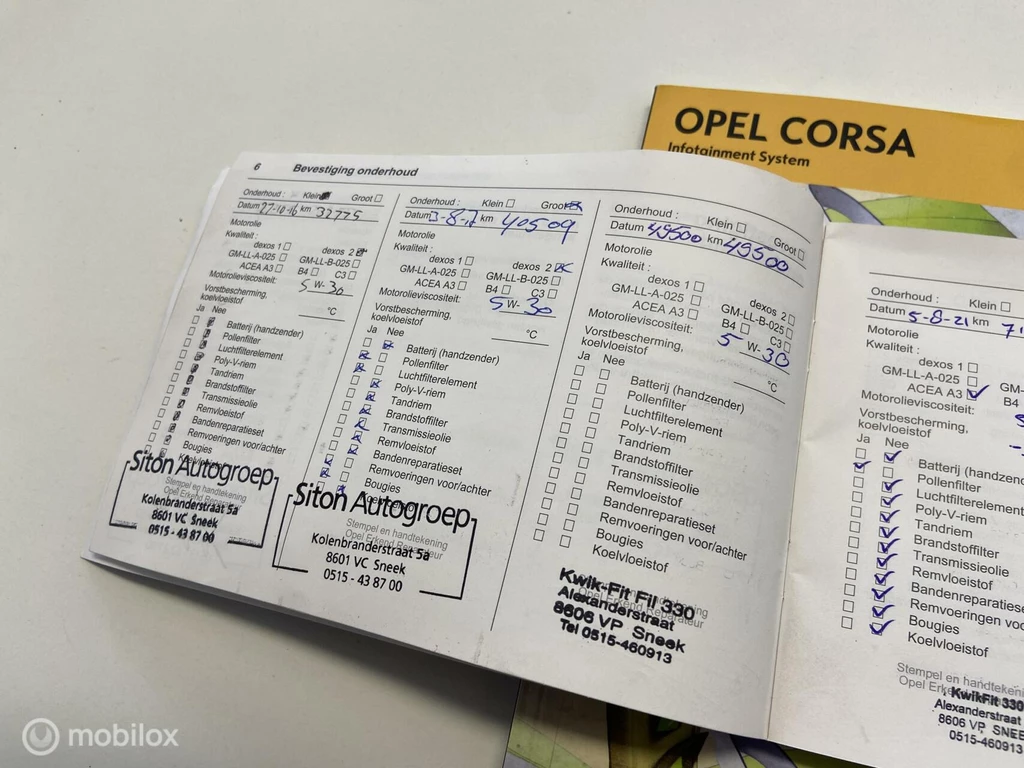 OPEL CORSA
Infotainment System
6 Bevestiging onderhoud
Onderhoud : Klein Groot
Datum 27-10-16 km 32775
Motorolie
Kwaliteit :
dexos 1 dexos 2
GM-LL-A-025 GM-LL-B-025
ACEA A3 B4 C3
Motorolieviscositeit: 5 W- 30
Vorstbescherming,
koelvloeistof °C
Ja Nee
Batterij (handzender)
Pollenfilter
Luchtfilterelement
Poly-V-riem
Tandriem
Brandstoffilter
Transmissieolie
Remvloeistof
Bandenreparatieset
Remvoeringen voor/achter
Bougies
Siton Autogroep
Stempel en handtekening
Opel Erkend Reparateur
Kolenbranderstraat 5a
8601 VC Sneek
0515 - 43 87 00
Onderhoud : Klein Groot
Datum km 40509
Motorolie
Kwaliteit :
dexos 1 dexos 2
GM-LL-A-025 GM-LL-B-025
ACEA A3 B4 C3
Motorolieviscositeit: 5 W- 30
Vorstbescherming,
koelvloeistof °C
Ja Nee
Batterij (handzender)
Pollenfilter
Luchtfilterelement
Poly-V-riem
Tandriem
Brandstoffilter
Transmissieolie
Remvloeistof
Bandenreparatieset
Remvoeringen voor/achter
Bougies
Koelvloeistof
Siton Autogroep
Stempel en handtekening
Opel Erkend Reparateur
Kolenbranderstraat 5a
8601 VC Sneek
0515 - 43 87 00
Onderhoud : Klein Groot
Datum 49500 km 49500
Motorolie
Kwaliteit :
dexos 1 dexos 2
GM-LL-A-025 GM-LL-B-025
ACEA A3 B4 C3
Motorolieviscositeit: 5 W- 30
Vorstbescherming,
koelvloeistof °C
Ja Nee
Batterij (handzender)
Pollenfilter
Luchtfilterelement
Poly-V-riem
Tandriem
Brandstoffilter
Transmissieolie
Remvloeistof
Bandenreparatieset
Remvoeringen voor/achter
Bougies
Koelvloeistof
Kwik-Fit Fil 330
Opel Erkend Reparateur
Alexanderstraat
8606 VP Sneek
Tel 0515-460913
Onderhoud : Klein
Datum 5-8-21 km
Motorolie
Kwaliteit :
dexos 1
GM-LL-A-025
ACEA A3 B4
Motorolieviscositeit:
Vorstbescherming,
koelvloeistof
Ja Nee
Batterij (handzend
Pollenfilter
Luchtfilterelement
Poly-V-riem
Tandriem
Brandstoffilter
Transmissieolie
Remvloeistof
Bandenreparatiese
Remvoeringen vo
Bougies
Koelvloeistof
Stempel en handteken
KwikFit 330
Alexanderstraat
8606 VP, SNEE
0515-460913
mobilox